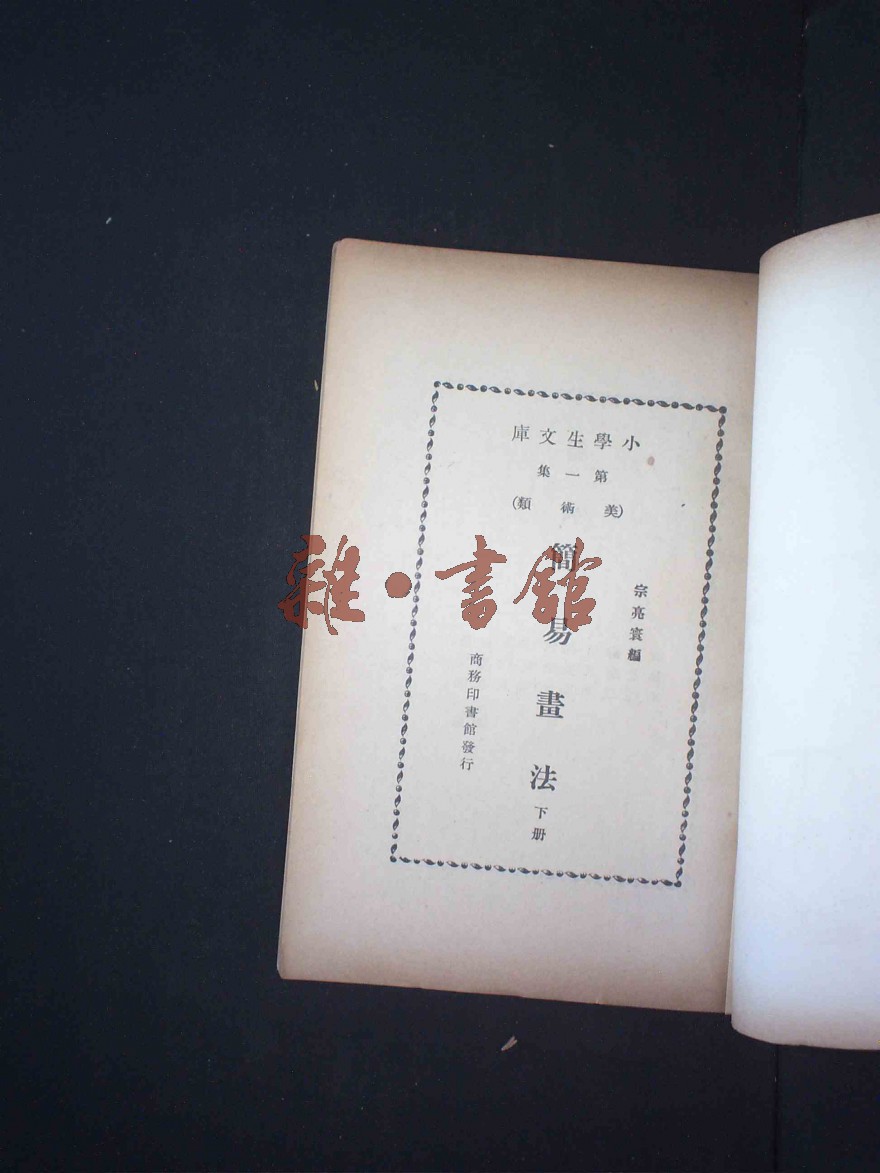 小學生文庫
第一集
(美術類)
宗亮寰編
簡易畫法 下册
商務印書館發行
雜·書館